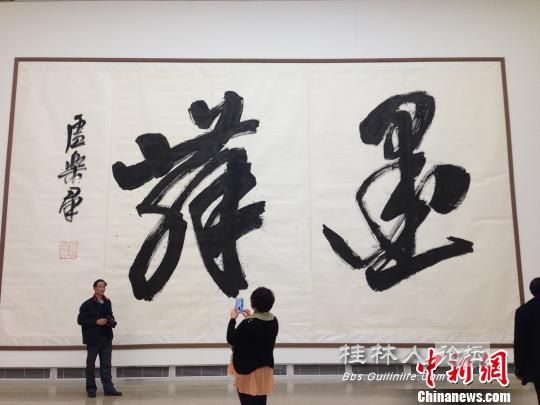 墨舞
盧樂羣
桂林人论坛
Bbs.Guilinlife.Com
中新网
Chinanews.com